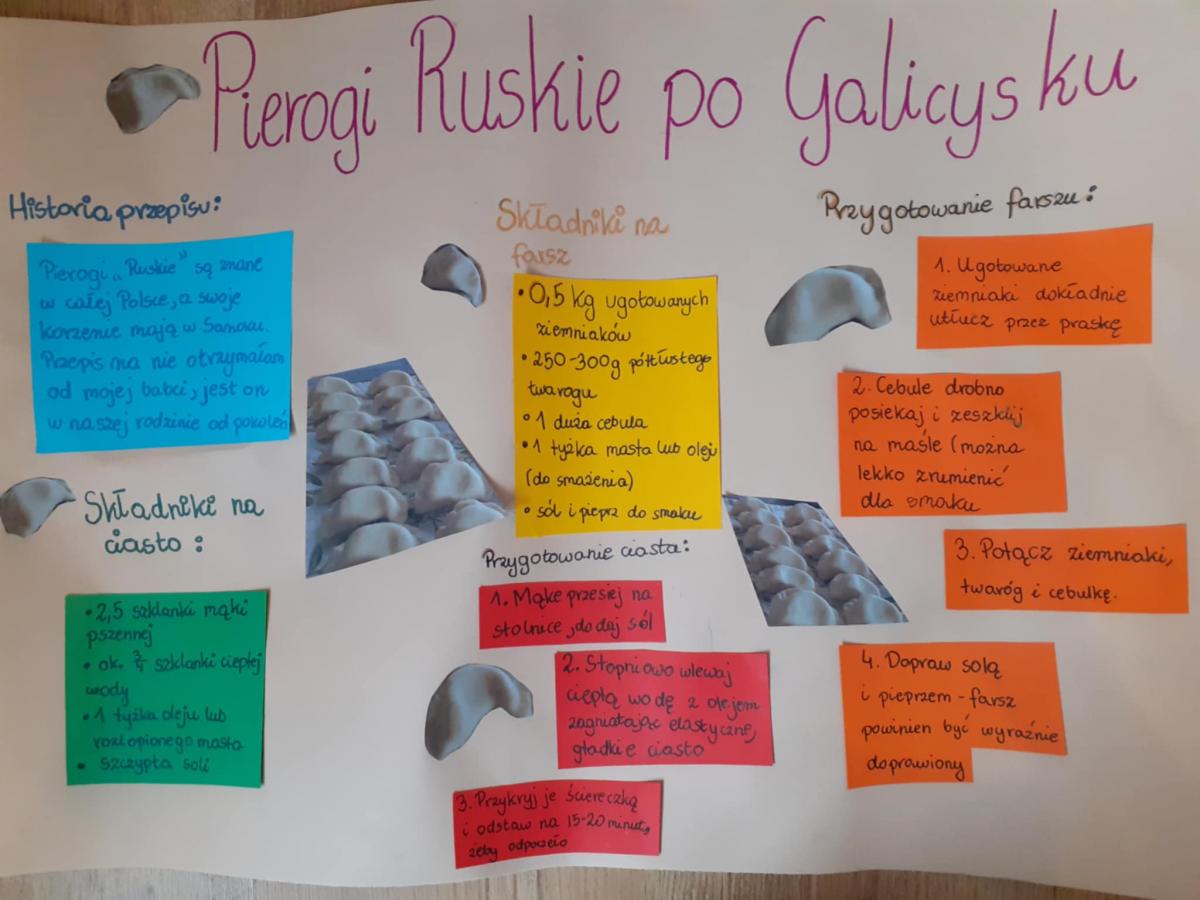 Pierogi Ruskie po Galicysku
Historia przepisu:
Pierogi „Ruskie” są znane
w całej Polsce, a swoje
korzenie mają w Sanoku.
Przepis na nie otrzymałam
od mojej babci, jest on
w naszej rodzinie od pokoleń
Składniki na
ciasto:
• 2,5 szklanki mąki
pszennej
• ok. 3/4 szklanki ciepłej
wody
• 1 łyżka oleju lub
roztopionego masła
• szczypta soli
Składniki na
farsz
• 0,5 kg ugotowanych
ziemniaków
• 250-300g półtłustego
twarogu
• 1 duża cebula
• 1 łyżka masła lub oleju
(do smażenia)
• sól i pieprz do smaku
Przygotowanie ciasta:
1. Mąke przesiej na
stolnice, dodaj sól
2. Stopniowo wlewaj
ciepłą wodę z olejem
zagniatając elastyczne,
gładkie ciasto
3. Przykryj je ściereczką
i odstaw na 15-20 minut,
żeby odpoczęło
Przygotowanie farszu:
1. Ugotowane
ziemniaki dokładnie
utłucz przez praskę
2. Cebule drobno
posiekaj i zeszklij
na maśle (można
lekko zrumienić
dla smaku
3. Połącz ziemniaki,
twaróg i cebulkę.
4. Dopraw solą
i pieprzem - farsz
powinien być wyraźnie
doprawiony